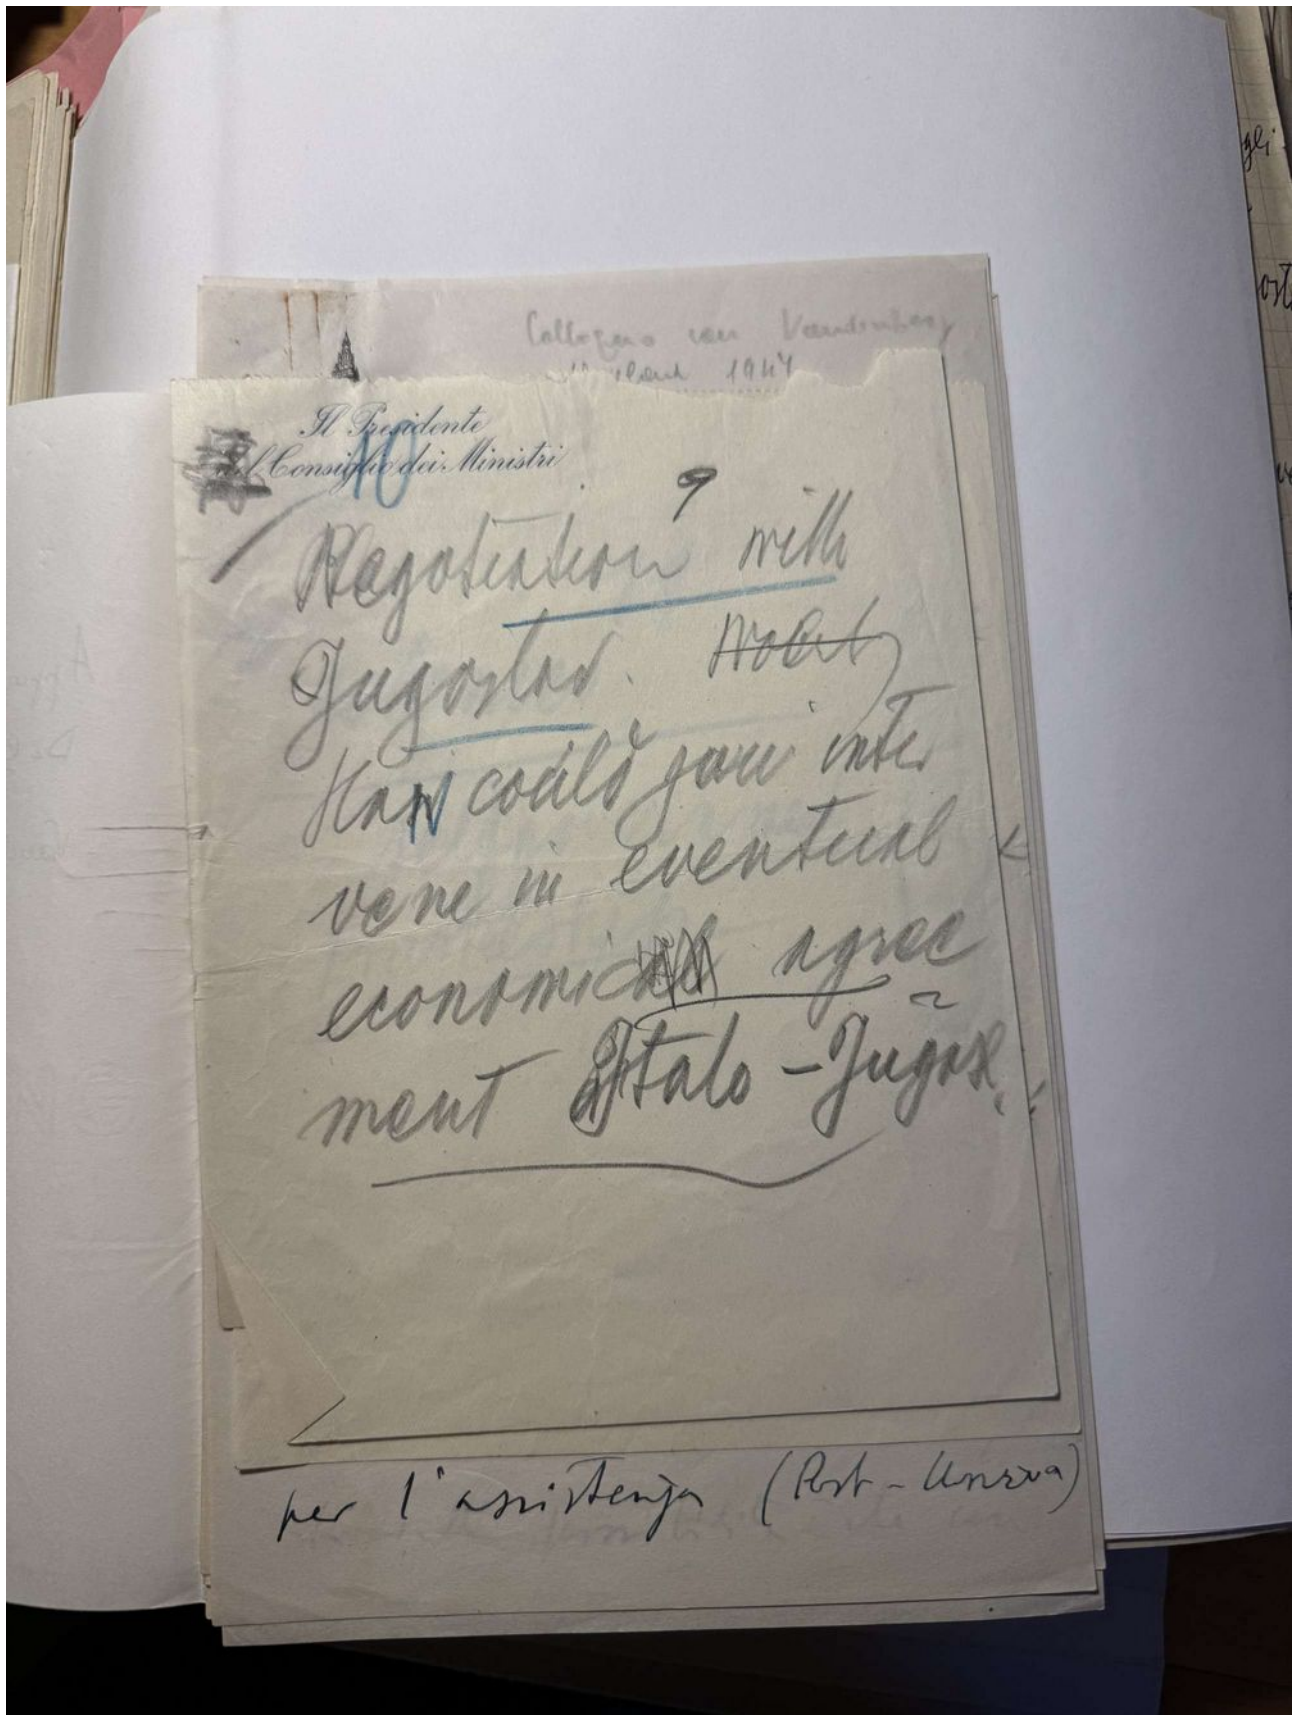 Colloquio con Vandenberg
1947
Il Presidente
del Consiglio dei Ministri
10
9
Negotiation with
Jugoslav.
How could you inter
vene in eventual
economic agree
ment Italo - Jugosl.
per l'assistenza (Post - Unrra)